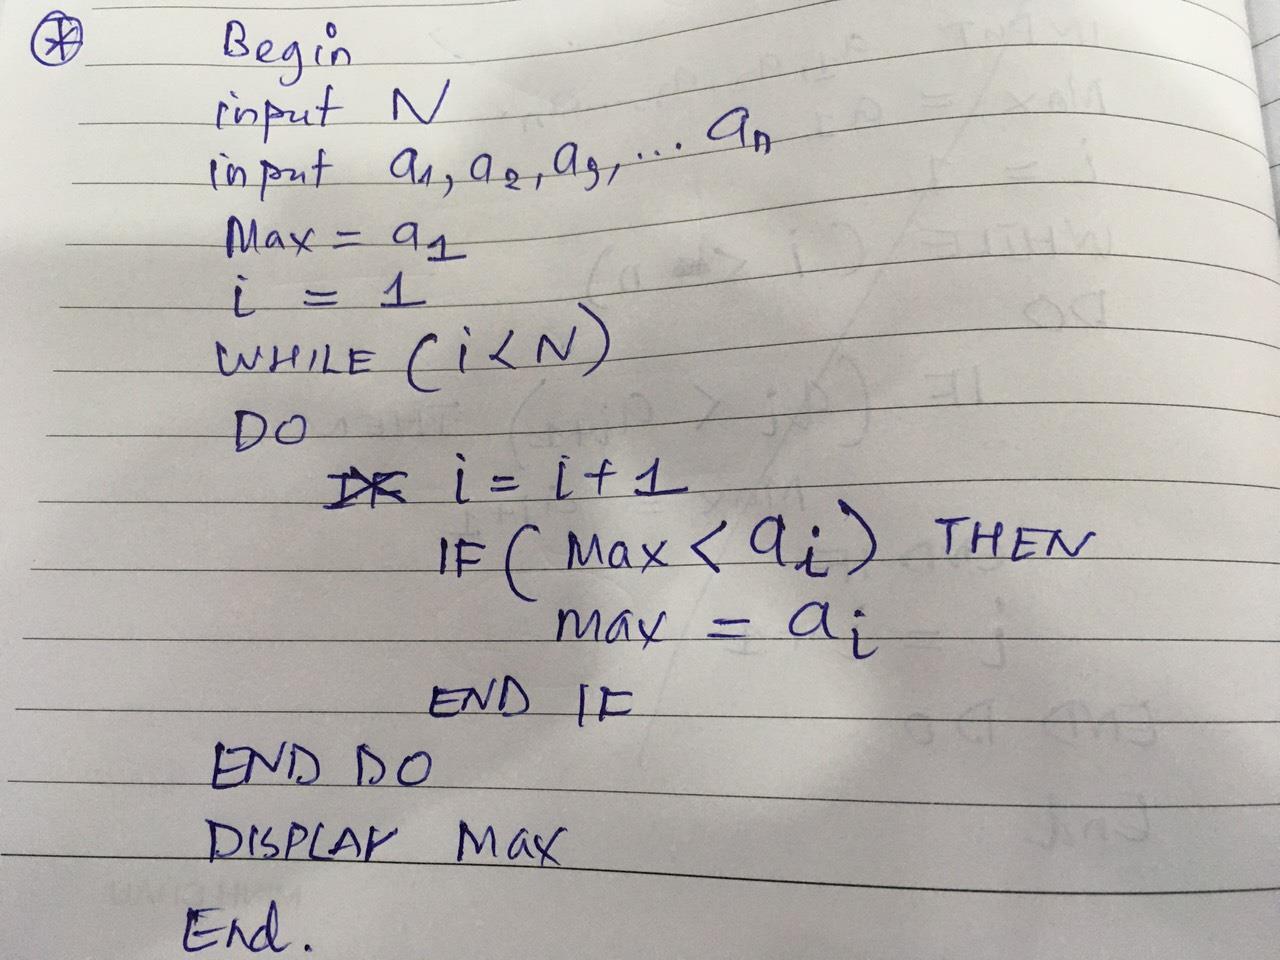 * Begin
input N
input a1, a2, a3, ... an
Max = a1
i = 1
WHILE (i < N)
DO
i = i + 1
IF ( Max < ai ) THEN
max = ai
END IF
END DO
DISPLAY Max
End.